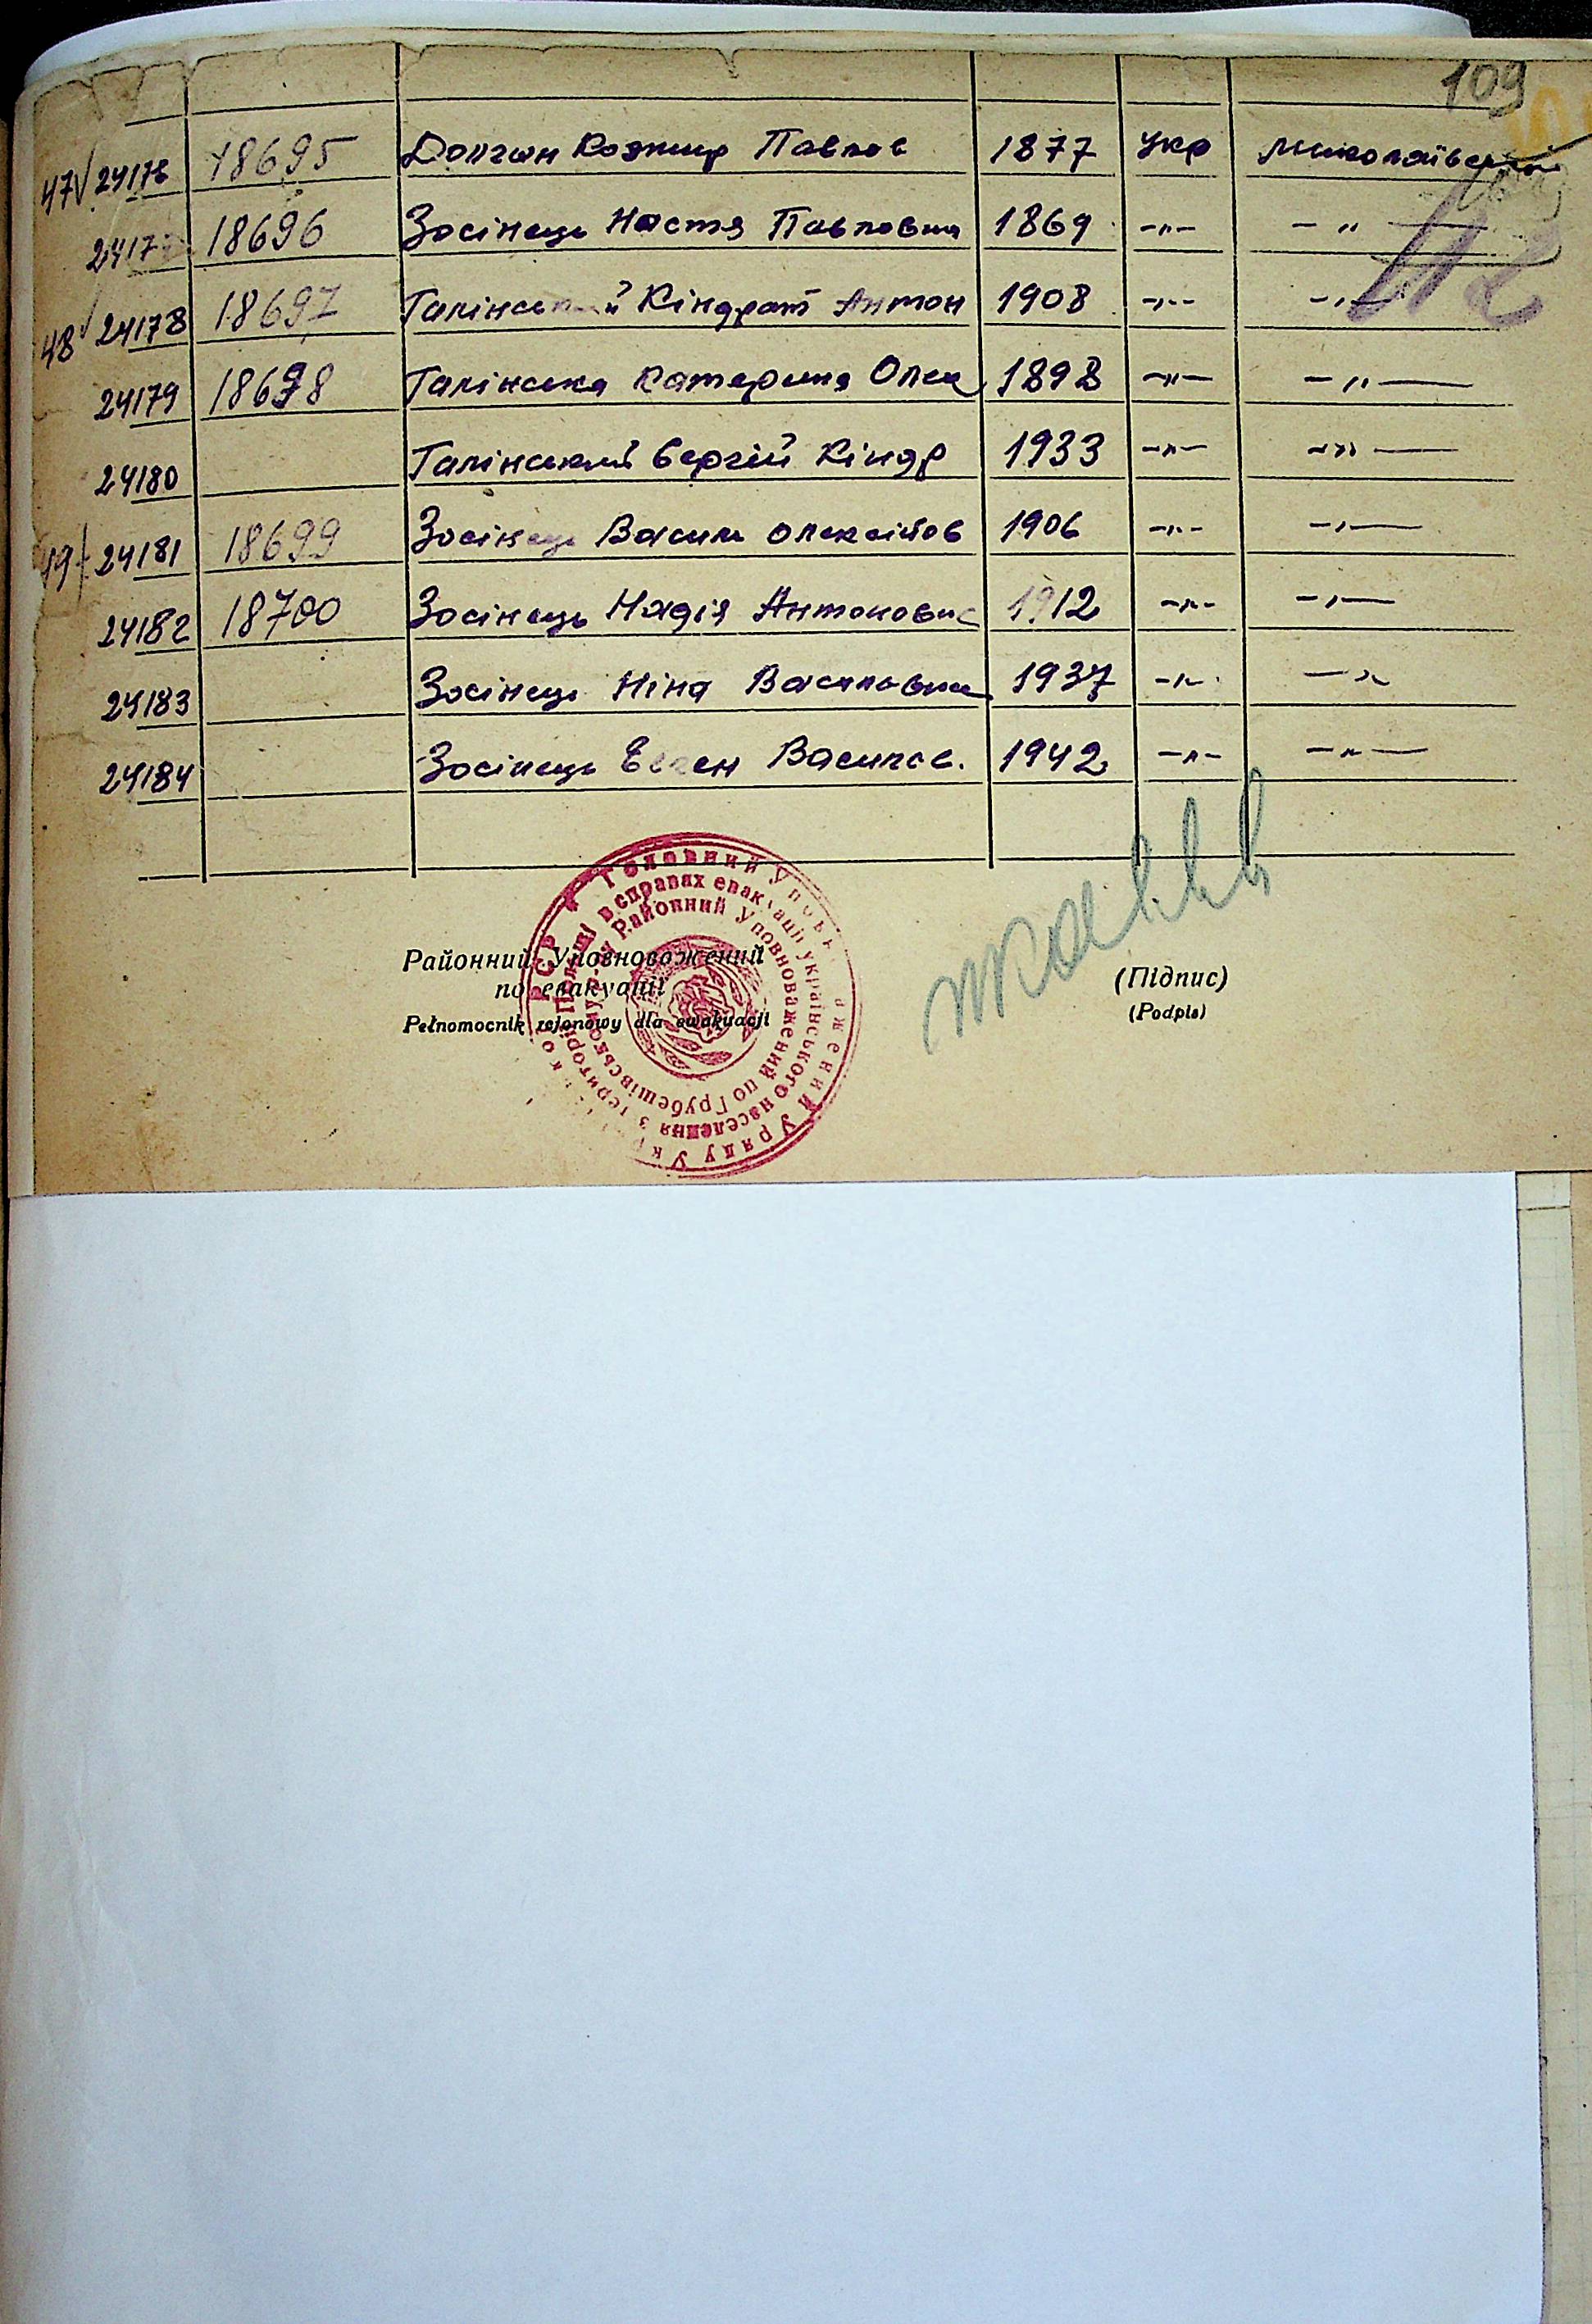 109
47√ 24176 18695 Долган Казтир Павлов 1877 Укр Миколаївська
2417 18696 Зосінець Настя Павловна 1869 -„- -„-
48√ 24178 18697 Галінський Кіндрат Антон 1908 -„- -„-
24179 18698 Галінська Катерина Олек 1898 -„- -„-
24180 Галінський Сергій Кіндр 1933 -„- -„-
49 24181 18699 Зосінець Василь Олексійов 1906 -„- -„-
24182 18700 Зосінець Надія Антоновна 1912 -„- -„-
24183 Зосінець Ніна Василовна 1937 -„- -„-
24184 Зосінець Евген Васильов. 1942 -„- -„-
Районний Уповноважений
по евакуації
Pełnomocnik rejonowy dla ewakuacji
(Підпис)
(Podpis)
Головний Уповноважений Уряду Ук РСР
в справах евакуації українського населення з територій Польщі
Районний Уповноважений по Грубешівському р-ну